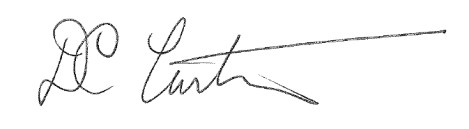 DC Curtis